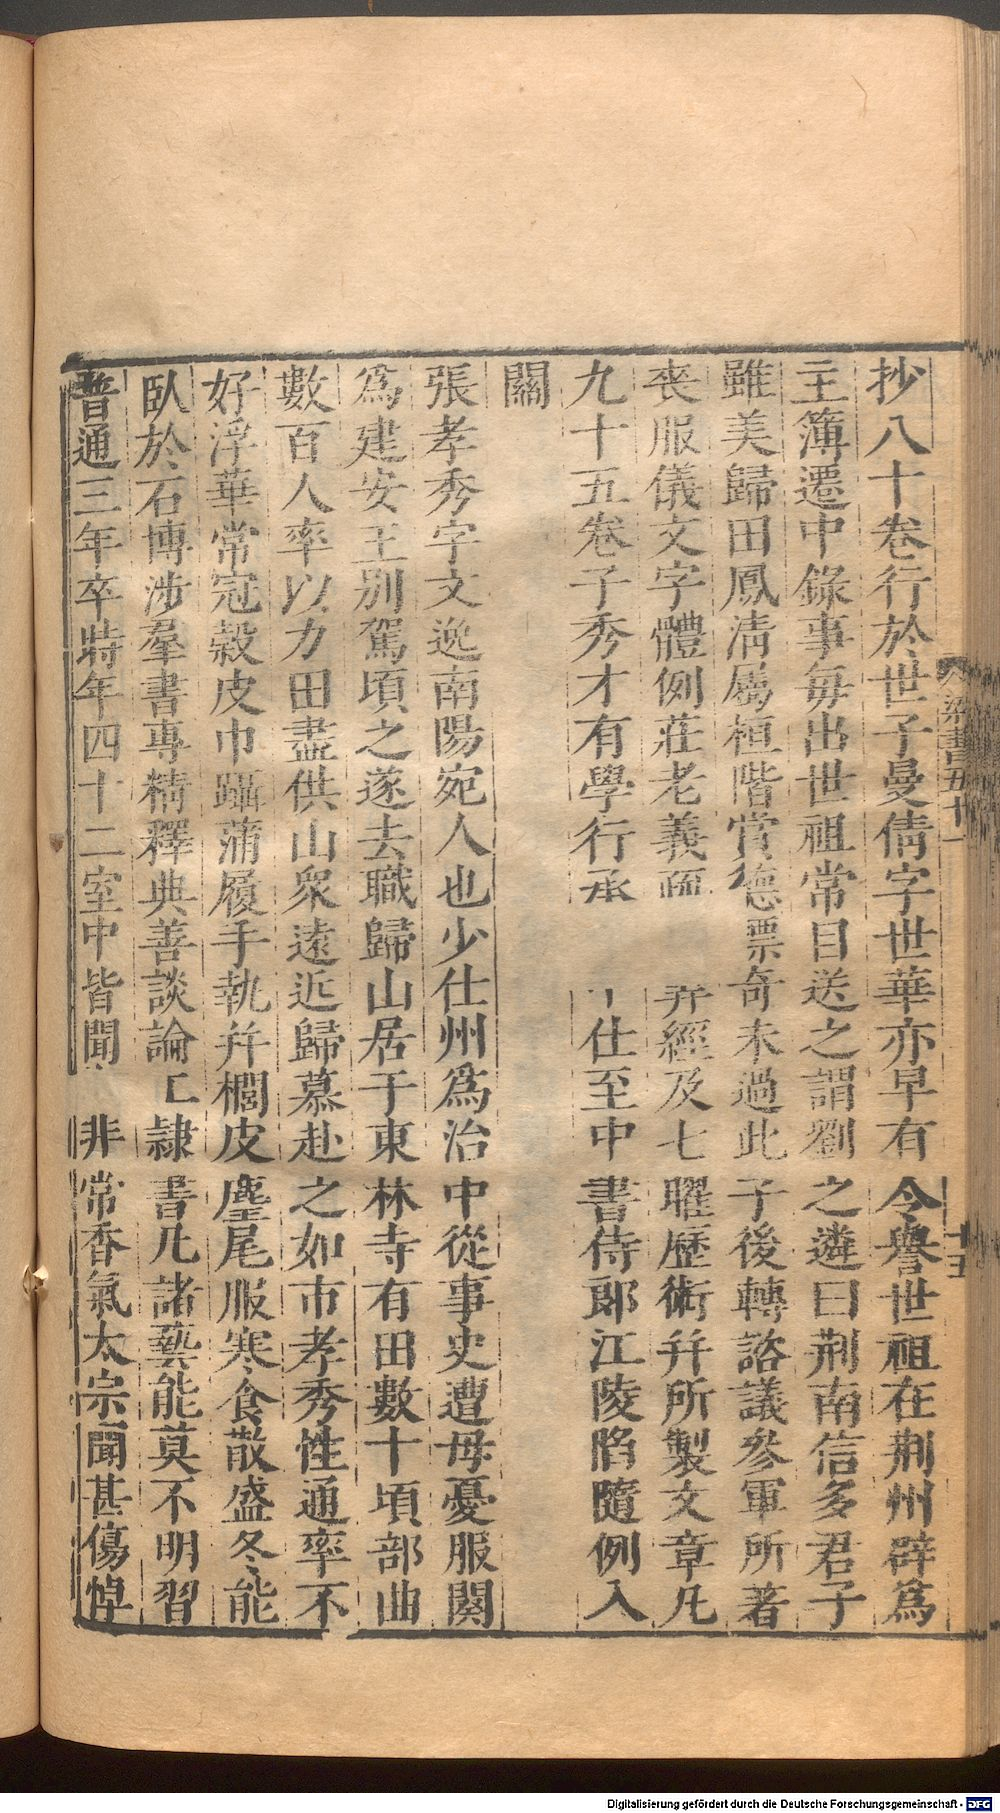 抄八十卷行於世子曼倩字世華亦早有令譽世祖在荆州辟爲
主簿遷中錄事每出世祖常目送之謂劉之遴曰荆南信多君子
雖美歸田鳳淸屬桓階賞德票奇未過此子後轉諮議參軍所著
喪服儀文字體例莊老義 經及七曜歷術幷所製文章凡
九十五卷子秀才有學行承 仕至中書侍郞江陵陷隨例入
關
張孝秀字文逸南陽宛人也少仕州爲治中從事史遭母憂服闋
爲建安王別駕頃之遂去職歸山居于東林寺有田數十頃部曲
數百人率以力田盡供山衆遠近歸慕赴之如市孝秀性通率不
好浮華常冠穀皮巾躡蒲履手執幷櫚皮麈尾服寒食散盛冬能
臥於石博涉羣書專精釋典善談論工隷書凡諸藝能莫不明習
普通三年卒時年四十二室中皆聞 非常香氣太宗聞甚傷悼
梁書五十一
十五
Digitalisierung gefördert durch die Deutsche Forschungsgemeinschaft - DFG